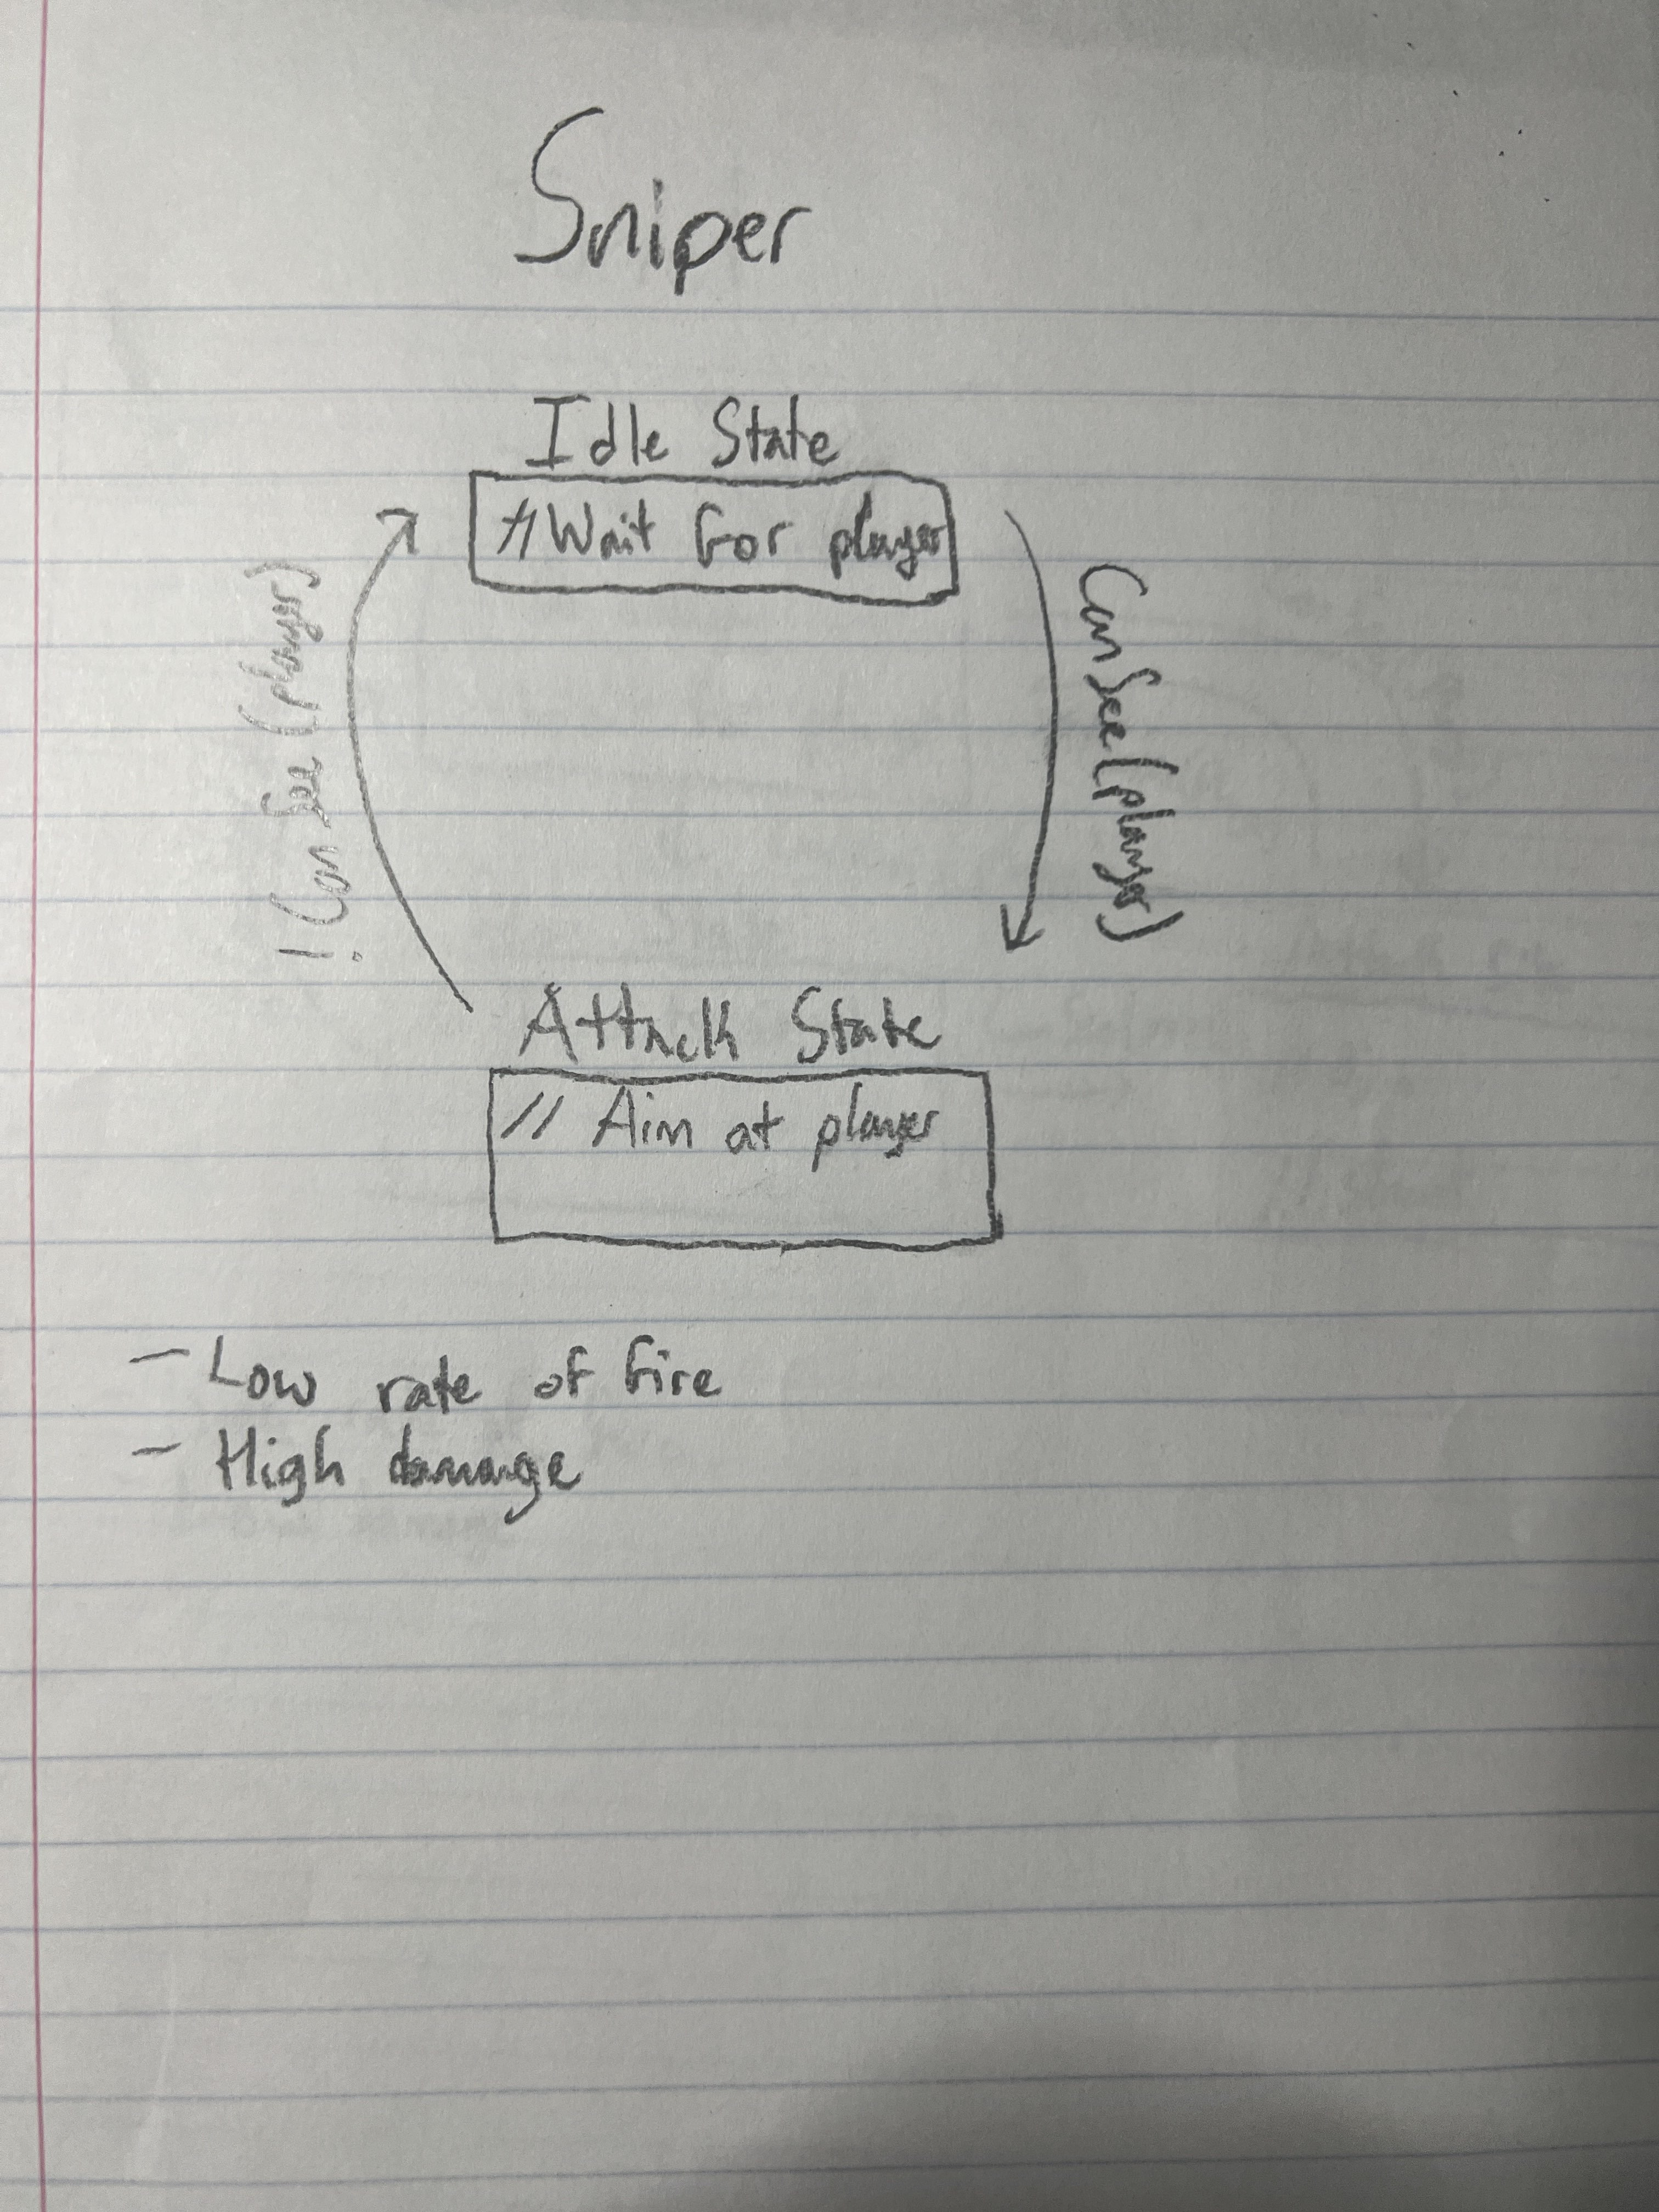 Sniper
Idle State
// Wait for player
CanSee(player)
!CanSee(player)
Attack State
// Aim at player
- Low rate of fire
- High damage